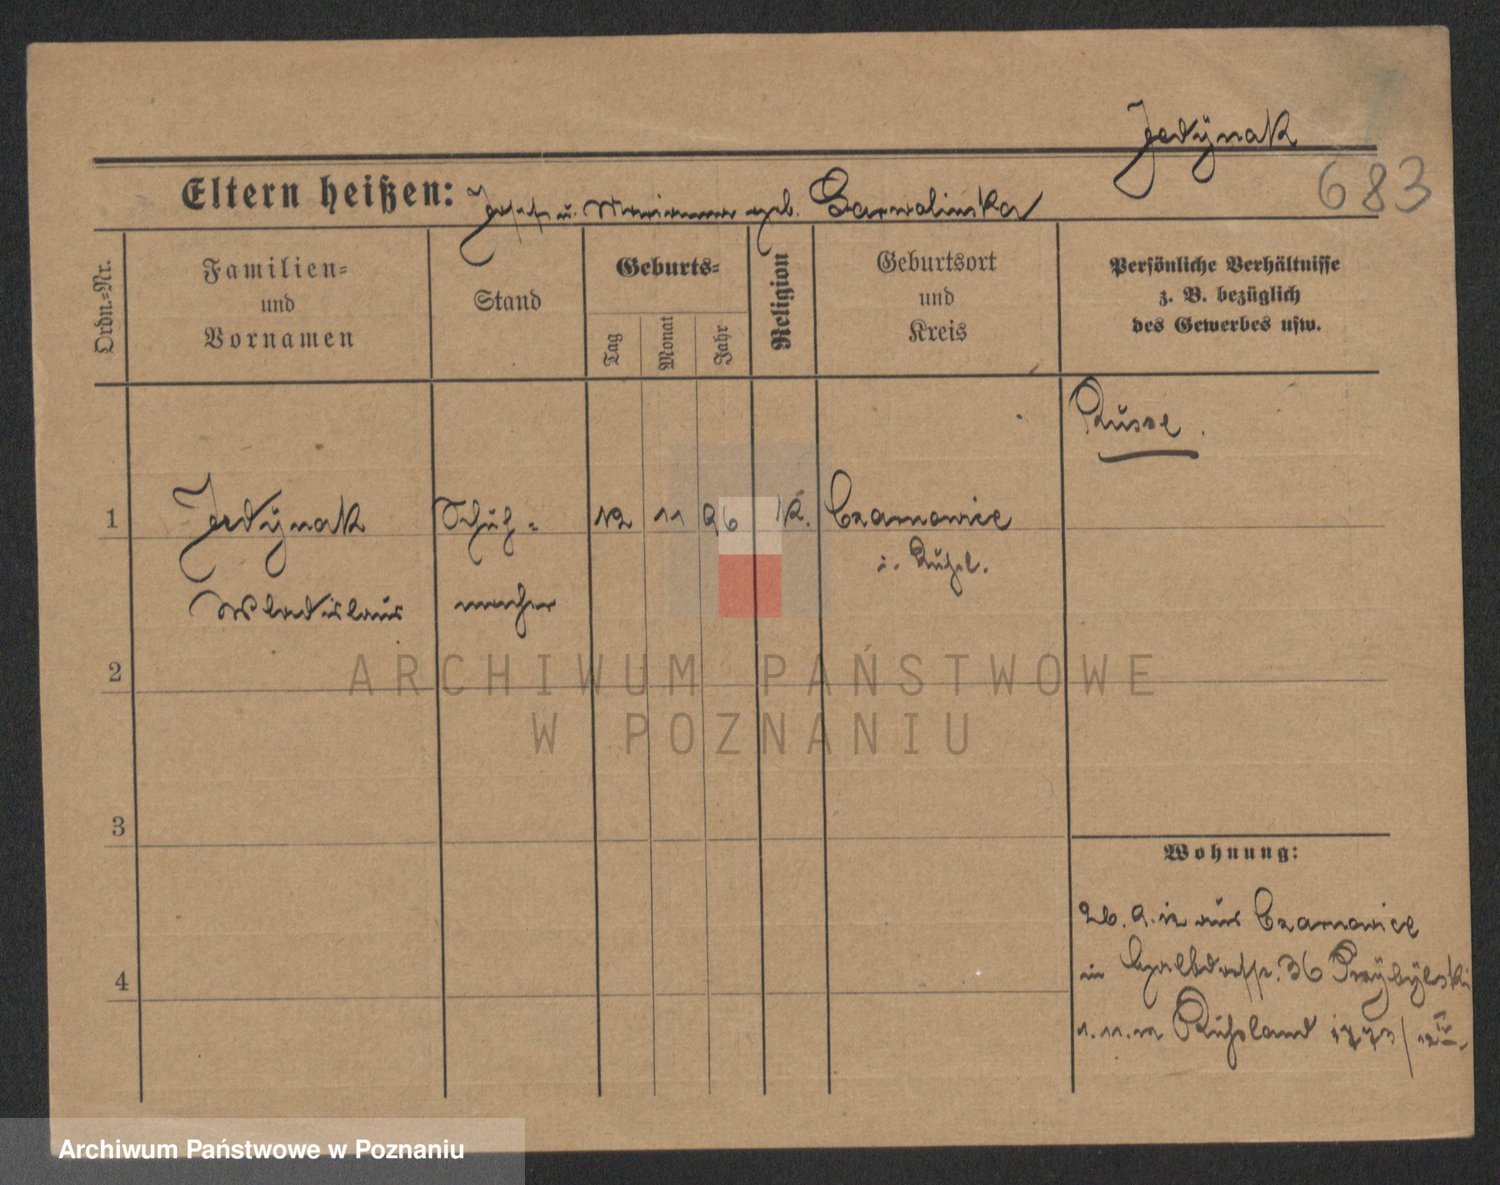 Jedÿnak
683
Eltern heißen: Josefs u. Marianna geb. Garwalinska
Ordn.-Nr.
Familien-
und
Vornamen
Stand
Geburts-
Tag
Monat
Jahr
Religion
Geburtsort
und
Kreis
Persönliche Verhältnisse
z. B. bezüglich
des Gewerbes usw.
Russe.
1 Jedÿnak Schuh- 12 11 96 K. Czarnowice
i. Rußl.
Wladislaus macher
2
3
4
Wohnung:
26. 9. 12 aus Czarnowice
in 36 Przÿbÿlski
1. 11. 12 Rußland 1773/12 IV.
ARCHIWUM PAŃSTWOWE
W POZNANIU
Archiwum Państwowe w Poznaniu